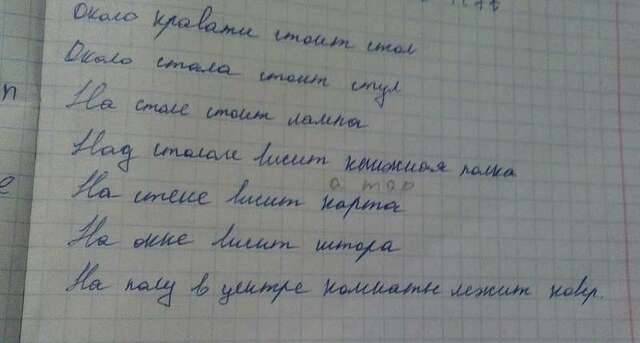 Около кравати стоит стол
Около стала стоит стул
На столе стоит лампа
Над столом висит книжная полка
На стене висит карта
На окне висит штора
На полу в центре комнаты лежит ковр.